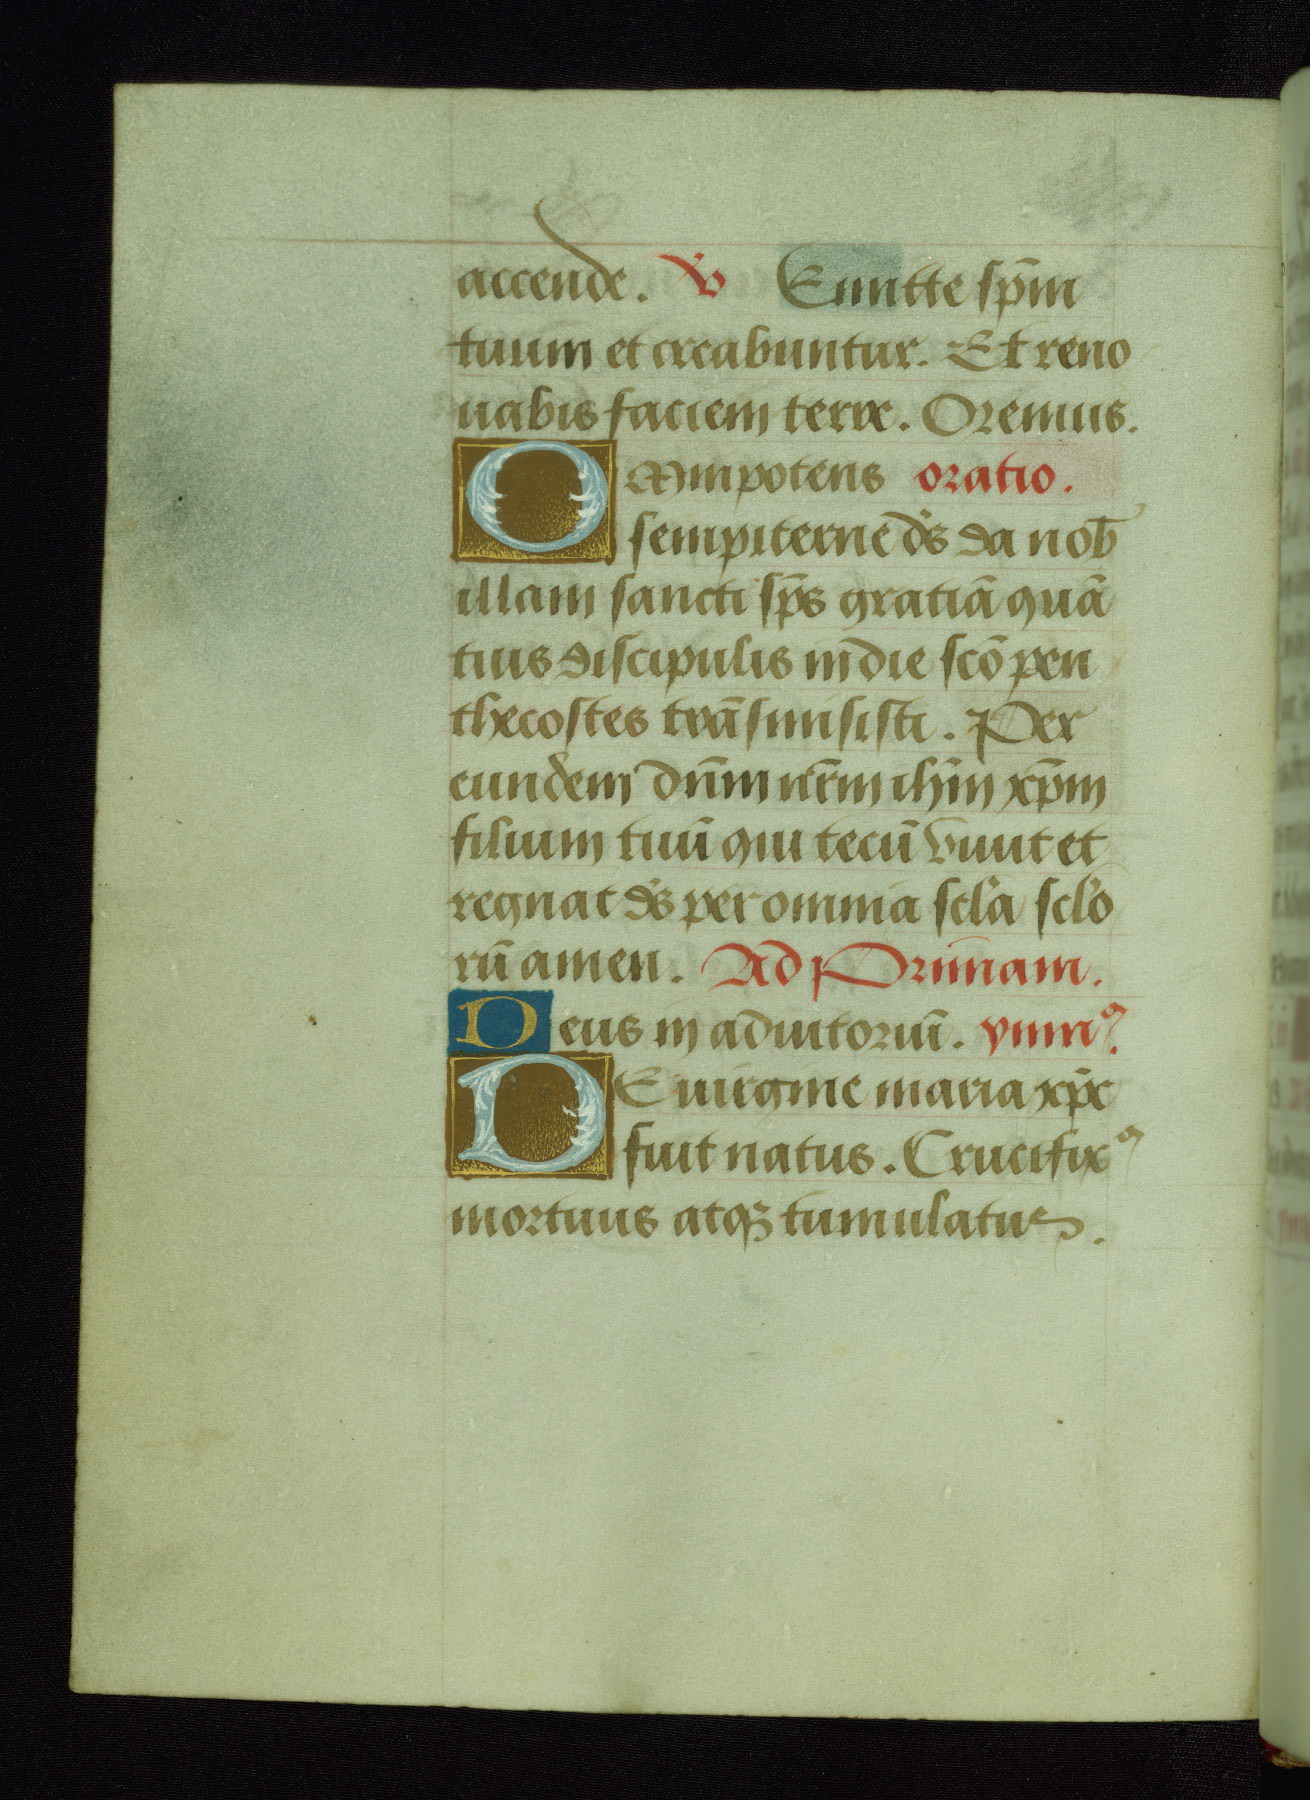 accende. V Emitte sp̄m
tuum et creabuntur. Et reno
uabis faciem terre. Oremus.
OMnipotens oratio.
sempiterne ds̄ da nob̄
illam sancti sp̄s gratiā quā
tuis discipulis in die scō pen
thecostes trāsmisisti. Per
eundem dn̄m nr̄m ihm̄ xp̄m
filium tuū qui tecū viuit et
regnat ds̄ per omnia scl̄a scl̄o
rū amen. Ad Primam.
Deus in adiutoriū. ymnꝰ.
DE uirgine maria xp̄c
fuit natus. Crucifixꝰ
mortuus atqꝫ tumulatus.